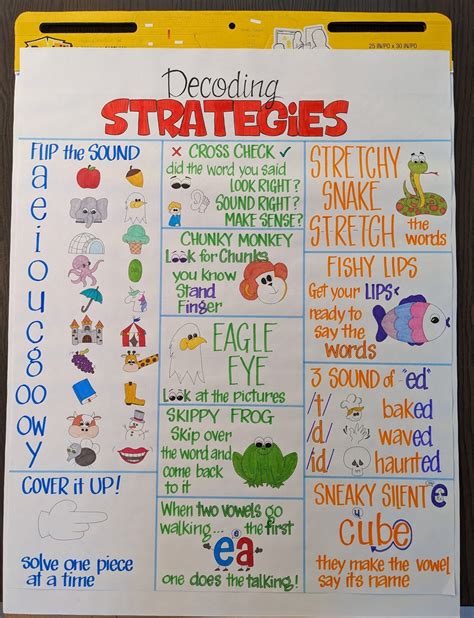 25 IN/PD x 30 IN/PD
Decoding
STRATEGIES
FLIP the SOUND
a
e
i
o
u
c
g
oo
ow
y
COVER it UP!
solve one piece
at a time
✗ CROSS CHECK ✓
did the word you said
LOOK RIGHT?
SOUND RIGHT?
MAKE SENSE?
CHUNKY MONKEY
Look for Chunks
you know
Stand
Finger
EAGLE
EYE
Look at the pictures
SKIPPY FROG
Skip over
the word and
come back
to it
When two vowels go
walking... the first
ea
one does the talking!
STRETCHY
SNAKE
STRETCH the
words
FISHY LIPS
Get your LIPS
ready to
say the
words
3 SOUND of "ed"
/t/ baked
/d/ waved
/id/ haunted
SNEAKY SILENT e
u
cube
they make the vowel
say its name